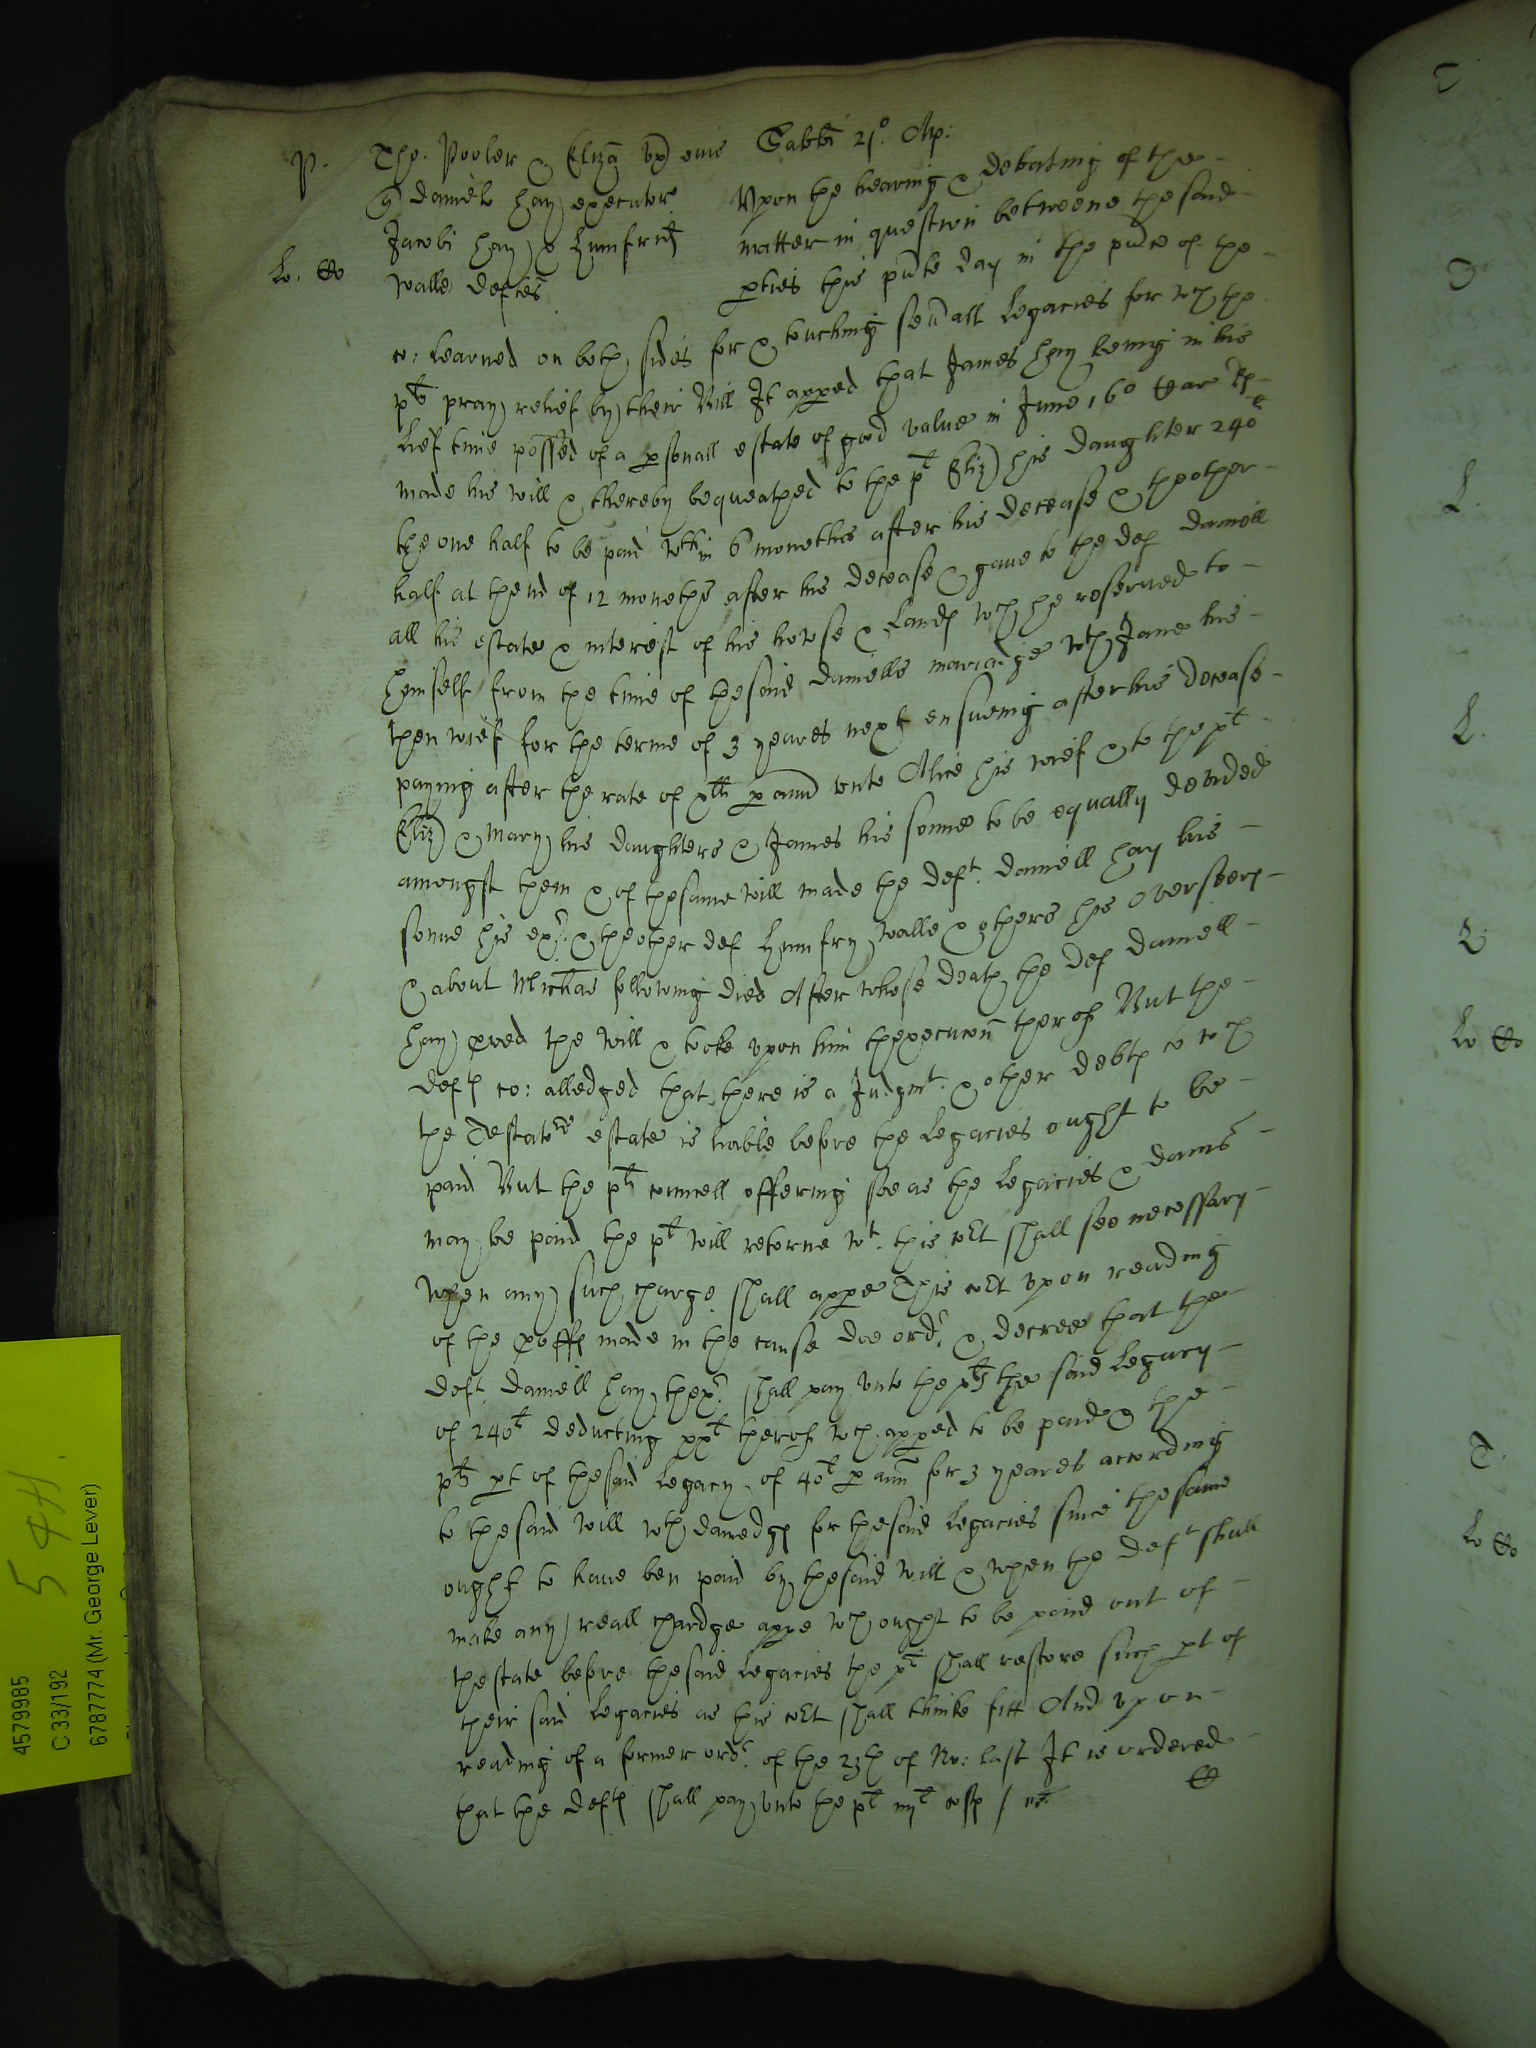 P. Tho. Pooler & Eliza ux eius Sabbi 21o. Ap:
q Daniele Hay executor Upon the hearing & debating of the
Jacobi Hay & Humfrid matter in question betweene the said
Lo. Co Walle deftes pties this pnte day in the pnce of the
co: learned on both sides for & touching seuall legacies for wch the
plts pray relief by their Bill It apped that James Hay being in his
lief time possed of a psonall estate of good value in June 16o Car Rs
made his will & thereby bequeathed to the plt Eliz his daughter 240l
the one half to be paid wthin 6 monethes after his decease & thother
half at thend of 12 monethes after his decease & gaue to the def Daniell
all his estate & interest of his howse & Lands wch he reserued to
himself from the time of thesaid Daniells mariadge wth Jane his
then wief for the terme of 3 yeares next ensueing after his decease
paying after the rate of xlli p annu vnto Alice his wief & to the plt
Eliz & Mary his daughters & James his sonne to be equally deuided
amongst them & of thesame will made the deft. Daniell Hay his
sonne his exr. & theother def Humfry Walle & others his overseers
& about Michas following died After whose death the def Daniell
Hay pved the will & tooke vpon him thexecucon therof But the
defts co: alledged that there is a Judgmt. & other debts to wch
the Testators estate is liable before the legacies ought to be
paid But the plts councell offering soe as the legacies & dams
may be paid the plt will retorne wt. this cort shall see necessary
when any such charge shall appe This cort vpon reading
of the proffs made in the cause doe ordr. & decree that the
deft Daniell Hay thexr. shall pay vnto the plts the said legacy
of 240l deducting xxl therof wch apped to be paid & the
plts pt of thesaid legacy of 40l p ann for 3 yeares according
to thesaid will wth damedgs for thesaid legacies since thesame
ought to haue ben paid by thesaid will & when the deft shall
make any reall chardge appe wch ought to be paid out of
thestate before thesaid legacies the plt shall restore such pt of
their said legacies as this cort shall thinke fitt And vpon
reading of a former ordr. of the 23th of No: last It is ordered
that the defts shall pay vnto the plt iiijl costs
5 4H.
4579985
C 33/192
6787774 (Mr. George Lever)